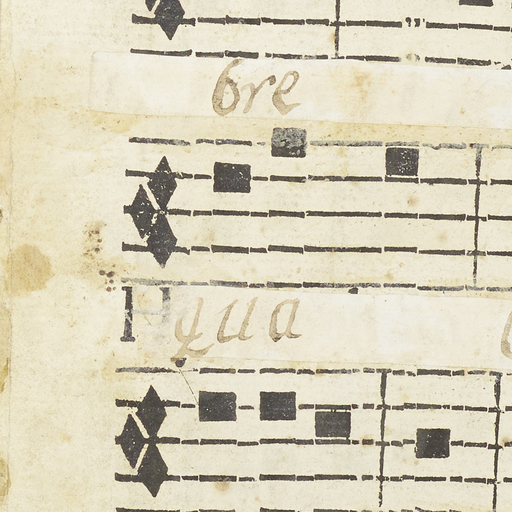 bre
qua